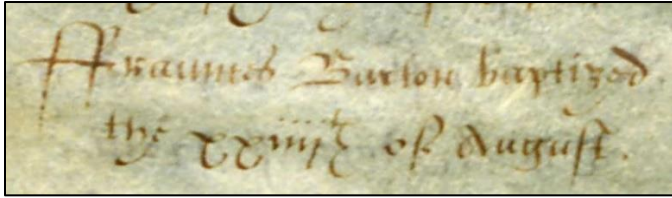 ffraunces Barton baptized
the xxiiijth of August.